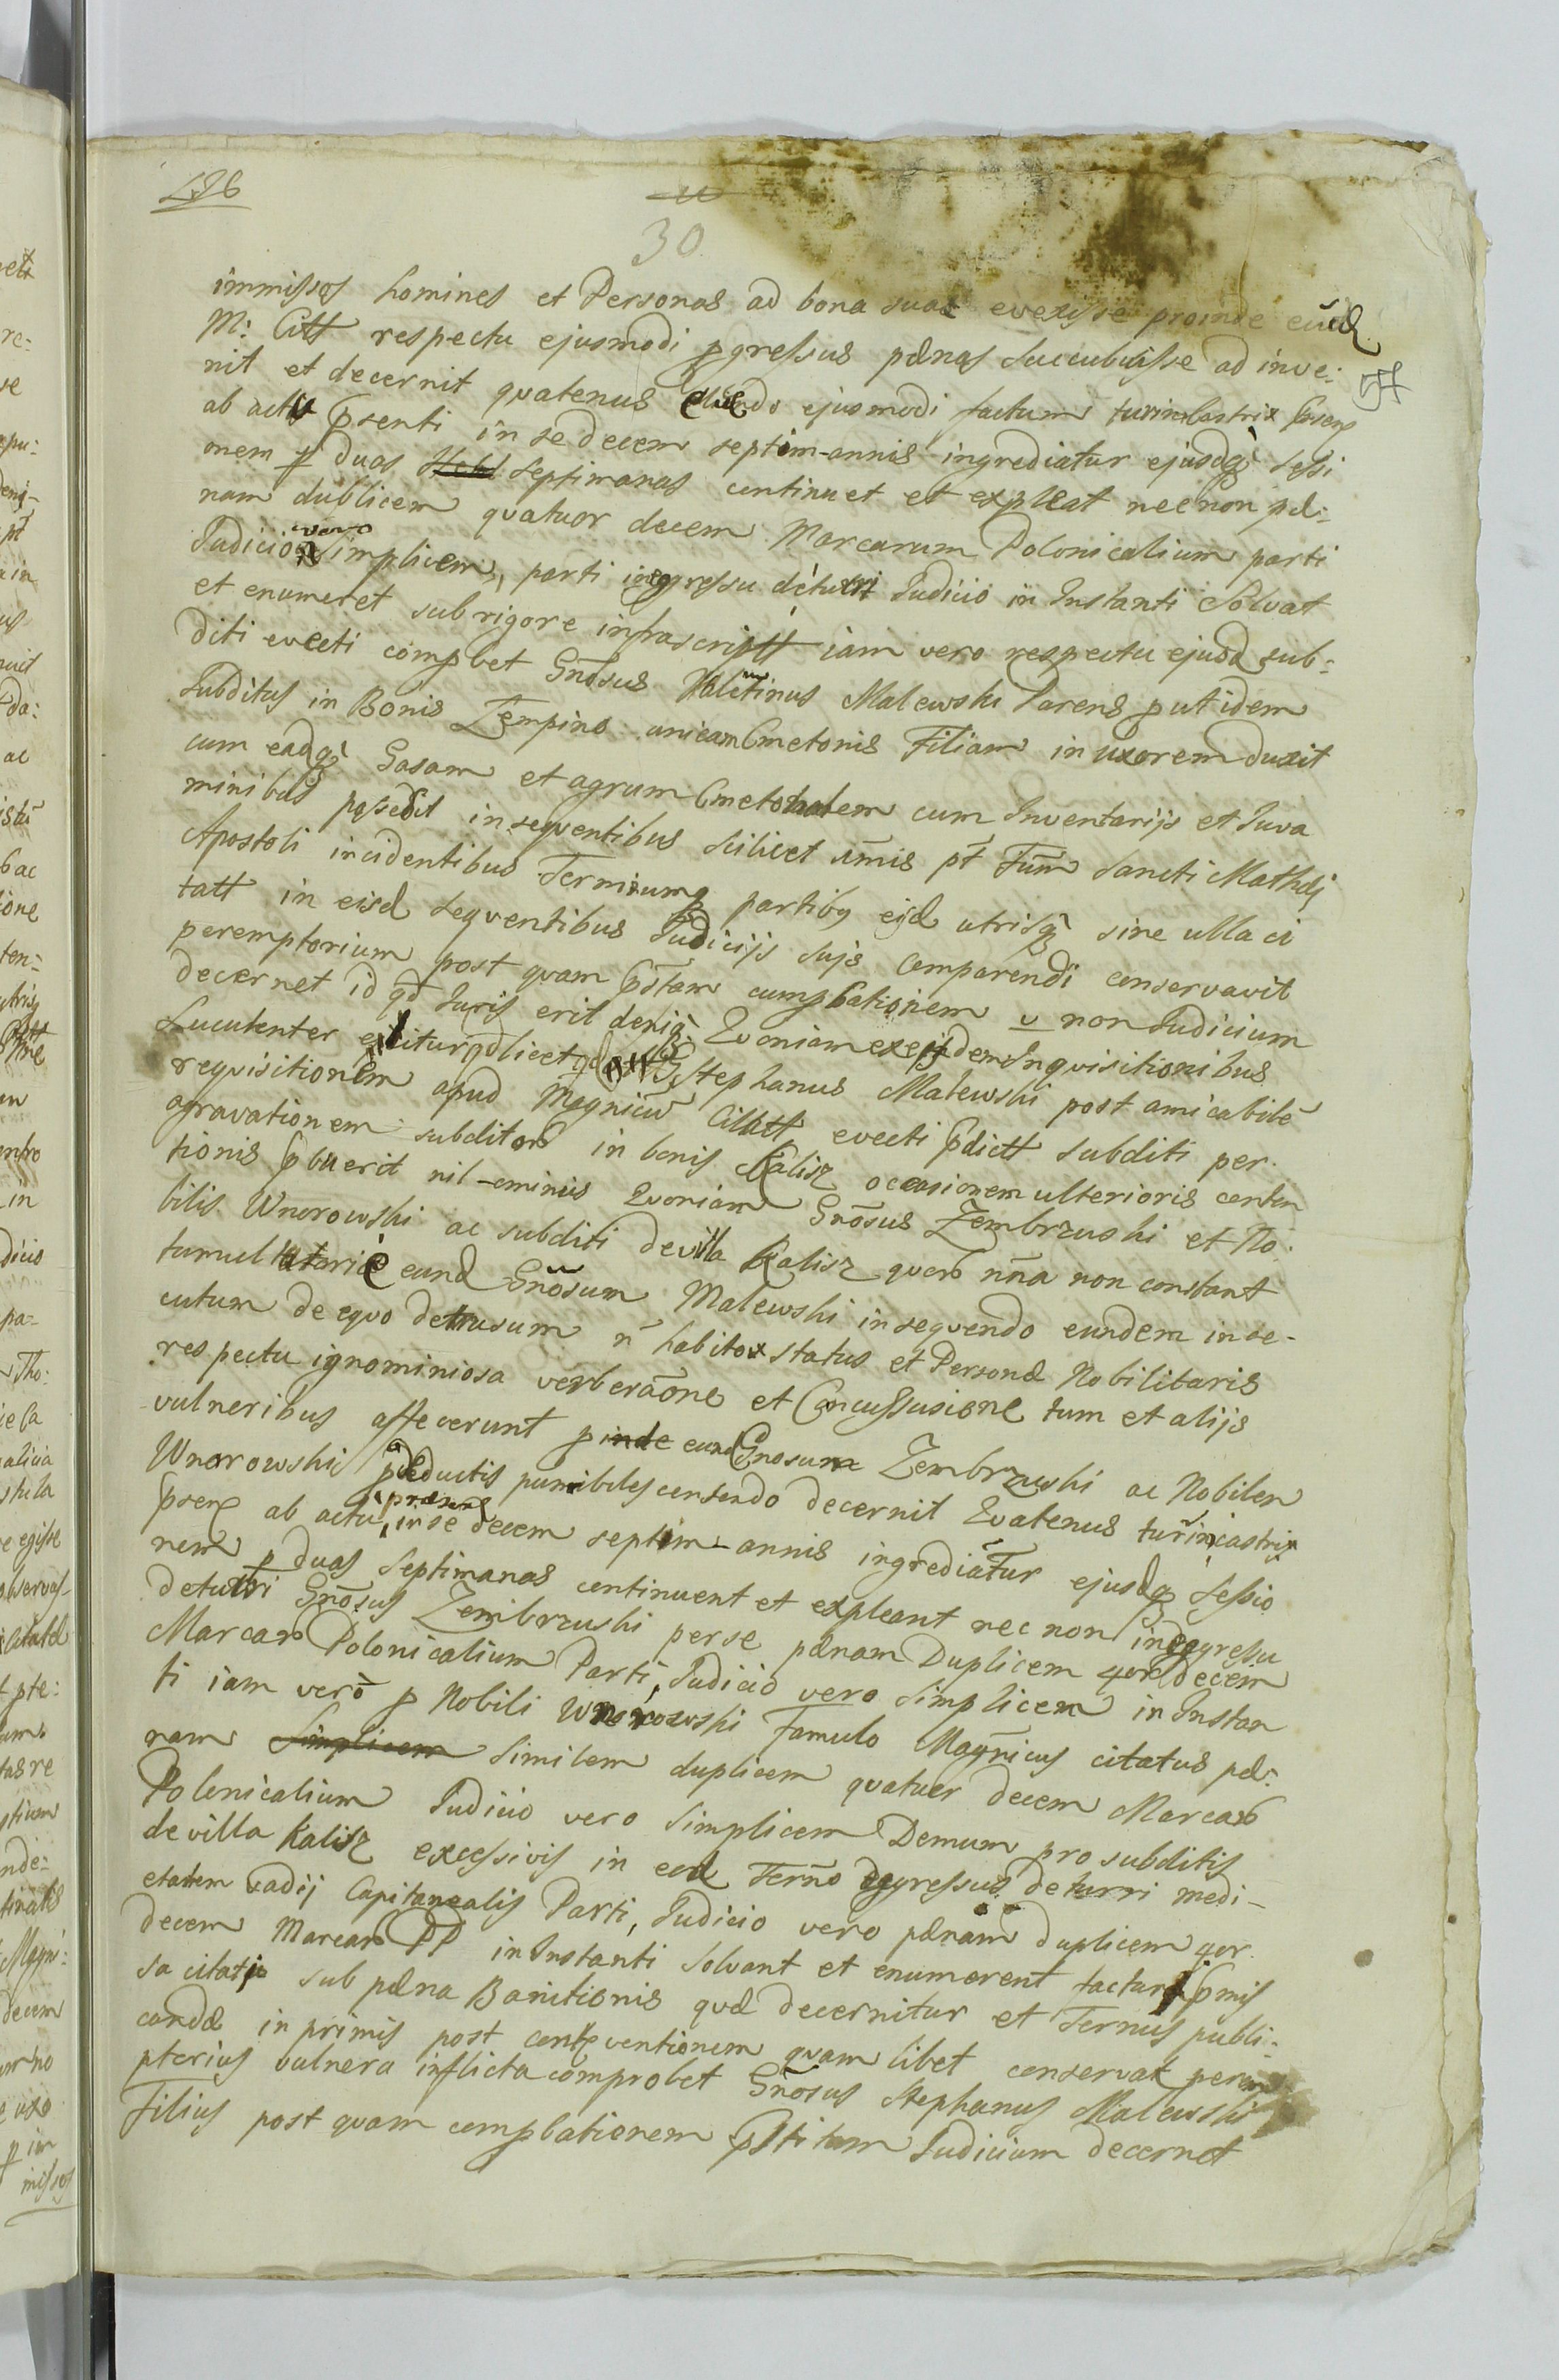 496
30
immissos homines et Personas ad bona suas evexisse proinde eund
M: Citt respectu ejusmodi pgressus pænas succubuisse ad inve:
nit et decernit quatenus ejusmodi factum turrim Castri Gosens
ab actu psenti in se decem septim-annis ingrediatur ejusdq sessi
onem p duas septimanas continuet et expleat nec non pæ:
nam dublicem quatuor decem Marcarum Polonicalium parti
Judicio vero Simplicem, parti in egressu de turri Judicio in Instanti Solvat
et enumeret sub rigore infrascriptt iam vero respectu ejusd sub:
diti evecti compbet Gnosus Valentinus Malewski Parens put idem
subditus in Bonis Zempino unicam Cmetonis Filiam in uxorem duxit
cum eadq Casam et agrum Cmetonalem cum Inventarijs et Juva
minibus possedit in seqventibus scilicet Tmis pt Fum Sancti Mathæj
Apostoli incidentibus Terminumq partibq eisd utrisq sine ulla ci
tatt in eisd seqventibus Judicijs suis comparendi conservavit
peremptorium post quam pstam compbationem v non Judicium
decernet id qd Juris erit deniq Qvoniam ex ejsdem Inqvisitionibus
Luculenter elicitur qd licet Stephanus Malewski post amicabilē
requisitionem apud Magnicum Cittt evecti pdictt subditi per
agravationem subditorum in bonis Kalisz occasionem ulterioris conten
tionis pbuerit nil-ominus Qvoniam Gnosus Zembrzuski et No:
bilis Wnorowski ac subditi de villa Kalisz quorum nna non constant
tumultuarie eund Gnosum Malewski insequendo eundem inse-
cutum de eqvo detrusum n habito status et Personæ Nobilitaris
respectu ignominiosa verberaone et Concussusione tum et alijs
vulneribus affecerunt pinde eund Gnosum Zembrzuski ac Nobilem
Wnorowski pdeductis punibiles censendo decernit Qvatenus turrim castri
psens ab actu præsenti in se decem septim-annis ingrediatur ejusdq sessio
nem p duas septimanas continuent et expleant nec non in egressu
de turri Gnosus Zembrzuski per se pænam Duplicem qor decem
Marcarum Polonicalium Parti, Judicio vero simplicem in Instan
ti iam vero p Nobili Wnorowski Famulo Magnicus citatus pæ:
nam Simplicem similem duplicem quatuor decem Marcarum
Polonicalium Judicio vero Simplicem Demum pro subditis
de villa Kalisz excessivis in eod Termo egressus de turri medi-
etatem vadij Capitanealis Parti, Judicio vero pænam duplicem qor
decem Marcarum PP in Instanti solvant et enumerent
sa citati sub pæna Banitionis quæ decernitur et Ternus publi:
candæ in primis post contraventionem quamlibet conservat perem
pterius vulnera inflicta comprobet Gnosus Stephanus Malewski
Filius post quam compbationem pstitam Judicium decernet